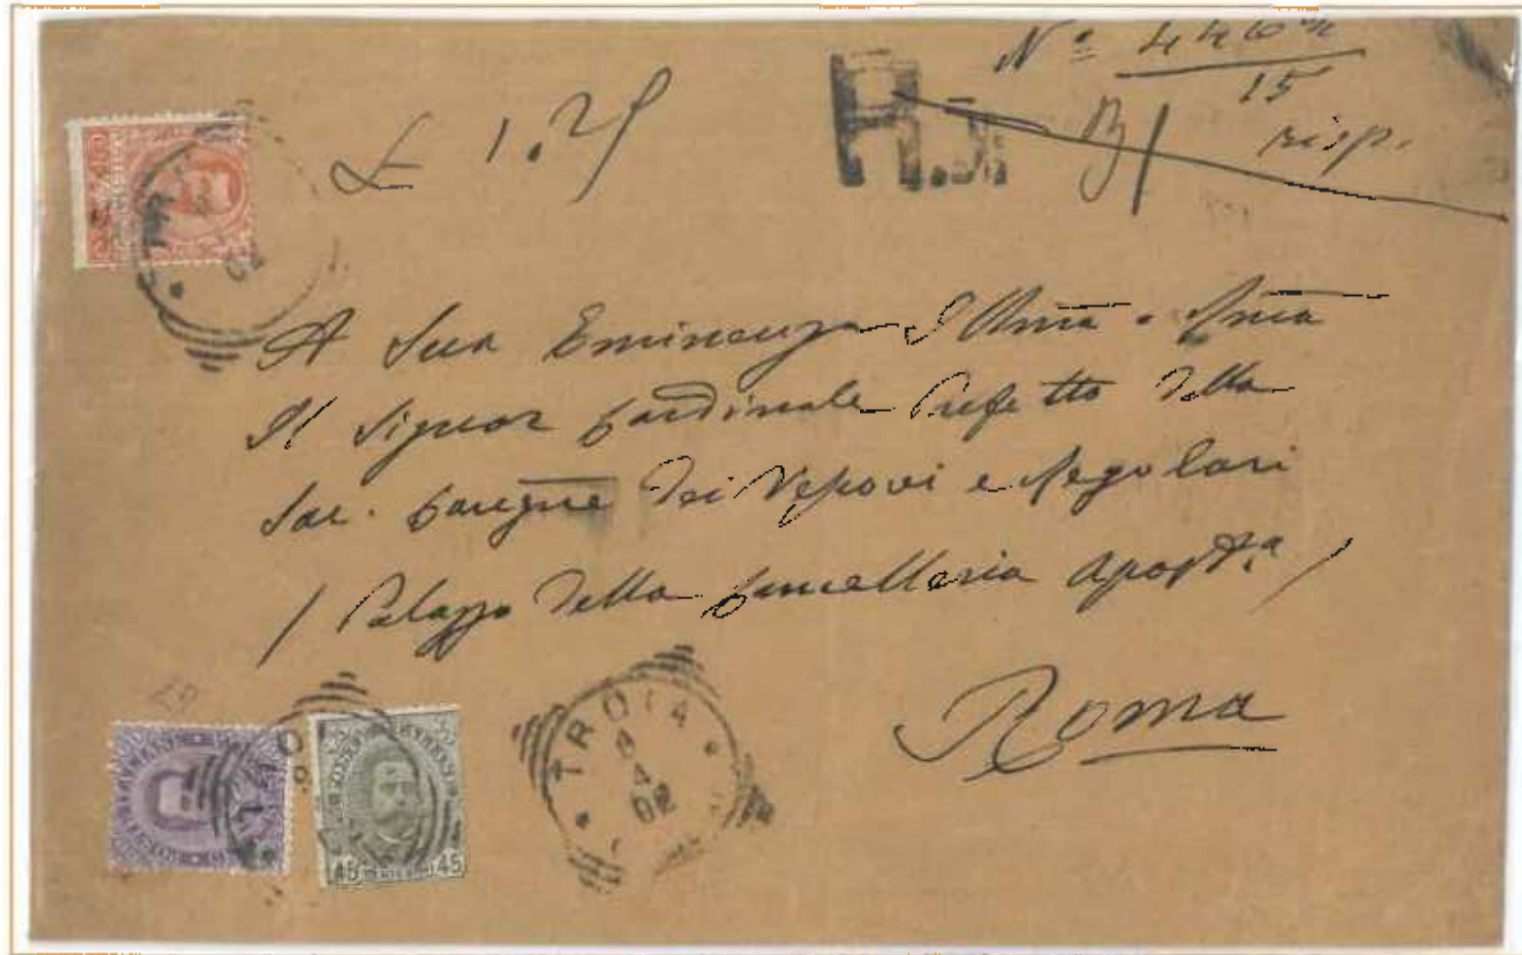 Nº 440
15
£ 1.25
R.
risp.
A Sua Eminenza Illma e Rma
Il Signor Cardinale Prefetto della
Sac. Congne dei Vescovi e Regolari
/ Palazzo della Cancelleria Apost.a /
Roma
TROIA
4
02
45 45